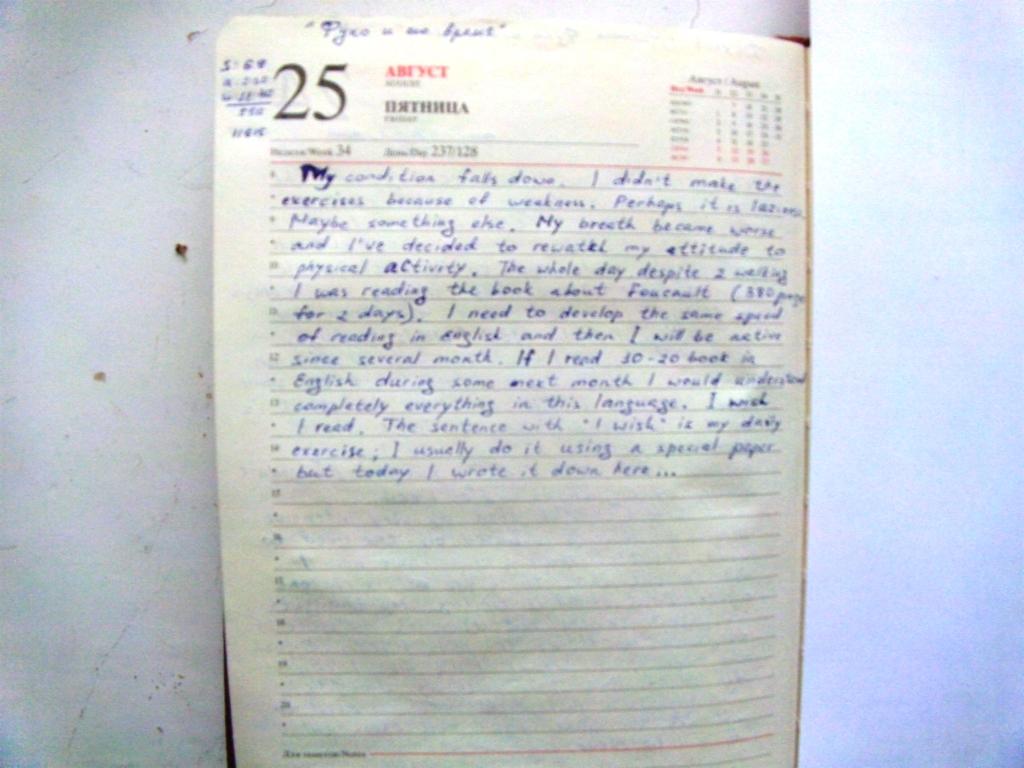 "Фуко и его время"
25
АВГУСТ
AUGUST
ПЯТНИЦА
FRIDAY
Август / August
Неделя/Week 34 День/Day 237/128
My condition falls down. I didn't make the
exercises because of weakness. Perhaps it is
Maybe something else. My breath became worse
and I've decided to my attitude to
physical activity. The whole day despite 2 walking
I was reading the book about Foucault (380 page
for 2 days). I need to develop the same speed
of reading in English and then I will be active
since several month. If I read 10-20 book in
English during some next month I would understand
completely everything in this language. I wish
I read. The sentence with "I wish" is my daily
exercise; I usually do it using a special paper
but today I wrote it down here...
Для заметок/Notes